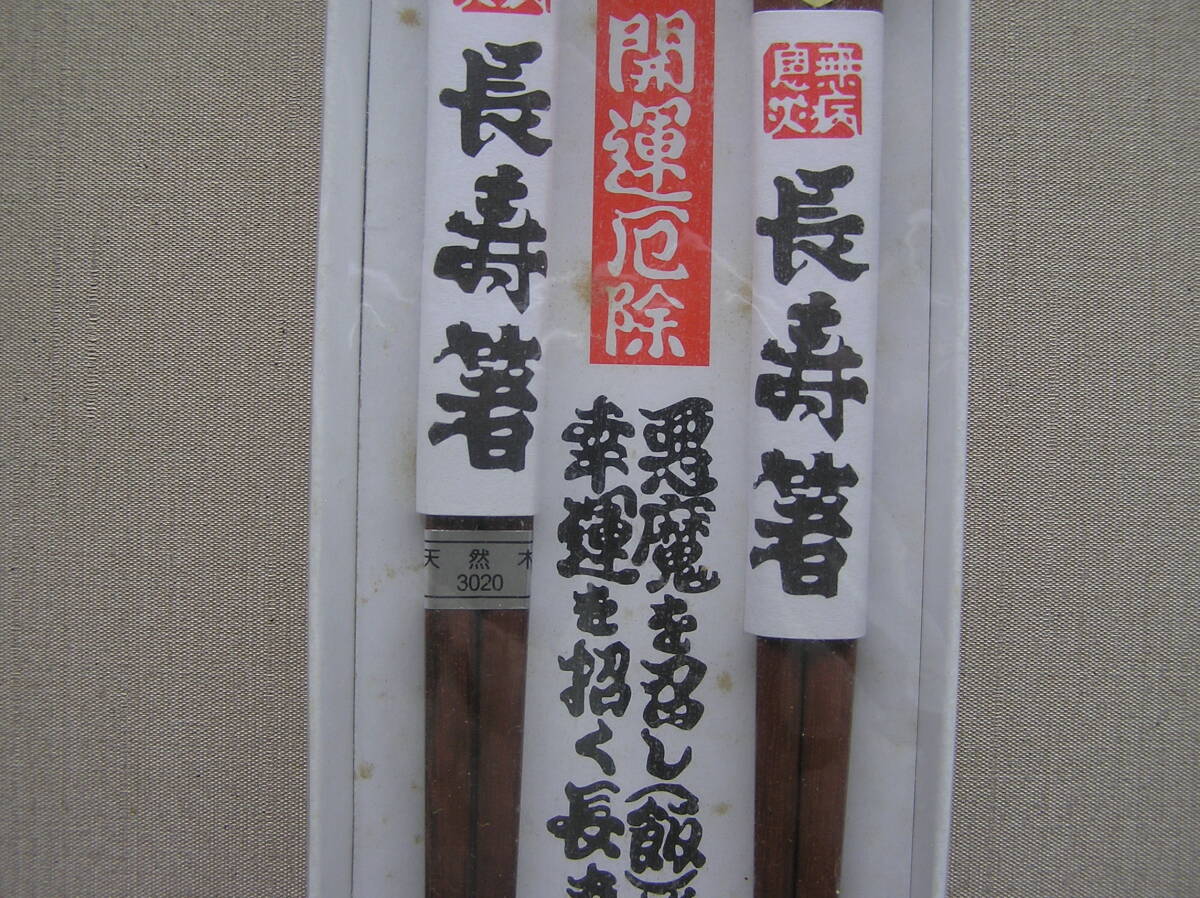 無病
息災
長寿箸
開運厄除
悪魔を召し(飯
幸運を招く長
長寿箸
天然木
3020